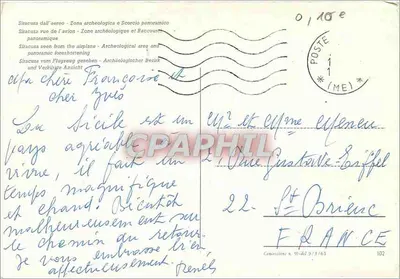 Siracusa dall'aereo - Zona archeologica e Scorcio panoramico
Siracusa vue de l'avion - Zone archéologique et Raccourci
panoramique
Siracusa seen from the airplane - Archeological area and
panoramic foreshortening
Siracusa vom Flugzeug gesehen - Archäologischer Bezirk
und Verkürzte Ansicht
0,10€
POSTE
(ME)
Ma chère Françoise et
cher Yves
La Sicile est un
pays agréable à
vivre, il fait un
temps magnifique
et chaud. Bientôt
malheureusement sur
le chemin du retour
Je vous embrasse bien
affectueusement.
CPARTPHIL.COM
Mr et Mme
21 Rue Gustave Eiffel
22 - St Brieuc
FRANCE
102